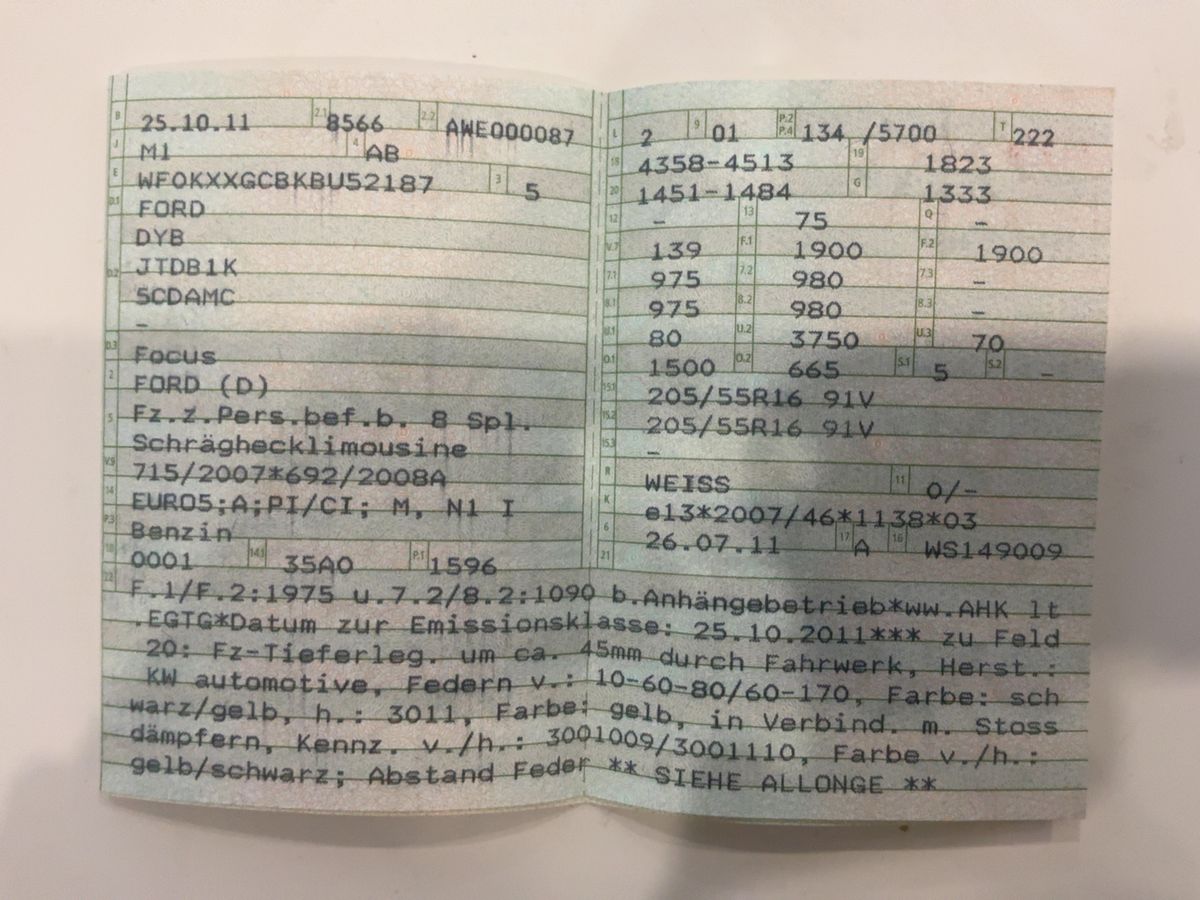 B 25.10.11 2.1 8566 2.2 AWE000087
J M1 4 AB
E WF0KXXGCBKBU52187 3 5
D.1 FORD
DYB
D.2 JTDB1K
5CDAMC
–
D.3 Focus
2 FORD (D)
5 Fz.z.Pers.bef.b. 8 Spl.
Schräghecklimousine
V.9 715/2007*692/2008A
14 EURO5;A;PI/CI; M, N1 I
P.3 Benzin
10 0001 14.1 35A0 P.1 1596
L 2 9 01 P.2 P.4 134 /5700 T 222
18 4358-4513 19 1823
20 1451-1484 G 1333
12 – 13 75 Q –
V.7 139 F.1 1900 F.2 1900
7.1 975 7.2 980 7.3 –
8.1 975 8.2 980 8.3 –
U.1 80 U.2 3750 U.3 70
O.1 1500 O.2 665 S.1 5 S.2 –
15.1 205/55R16 91V
15.2 205/55R16 91V
15.3 –
R WEISS 11 0/-
K e13*2007/46*1138*03
6 26.07.11 17 A 16 WS149009
21
22 F.1/F.2:1975 u.7.2/8.2:1090 b.Anhängebetrieb*ww.AHK lt
.EGTG*Datum zur Emissionsklasse: 25.10.2011*** zu Feld
20: Fz-Tieferleg. um ca. 45mm durch Fahrwerk, Herst.:
KW automotive, Federn v.: 10-60-80/60-170, Farbe: sch
warz/gelb, h.: 3011, Farbe: gelb, in Verbind. m. Stoss
dämpfern, Kennz. v./h.: 3001009/3001110, Farbe v./h.:
gelb/schwarz; Abstand Feder ** SIEHE ALLONGE **